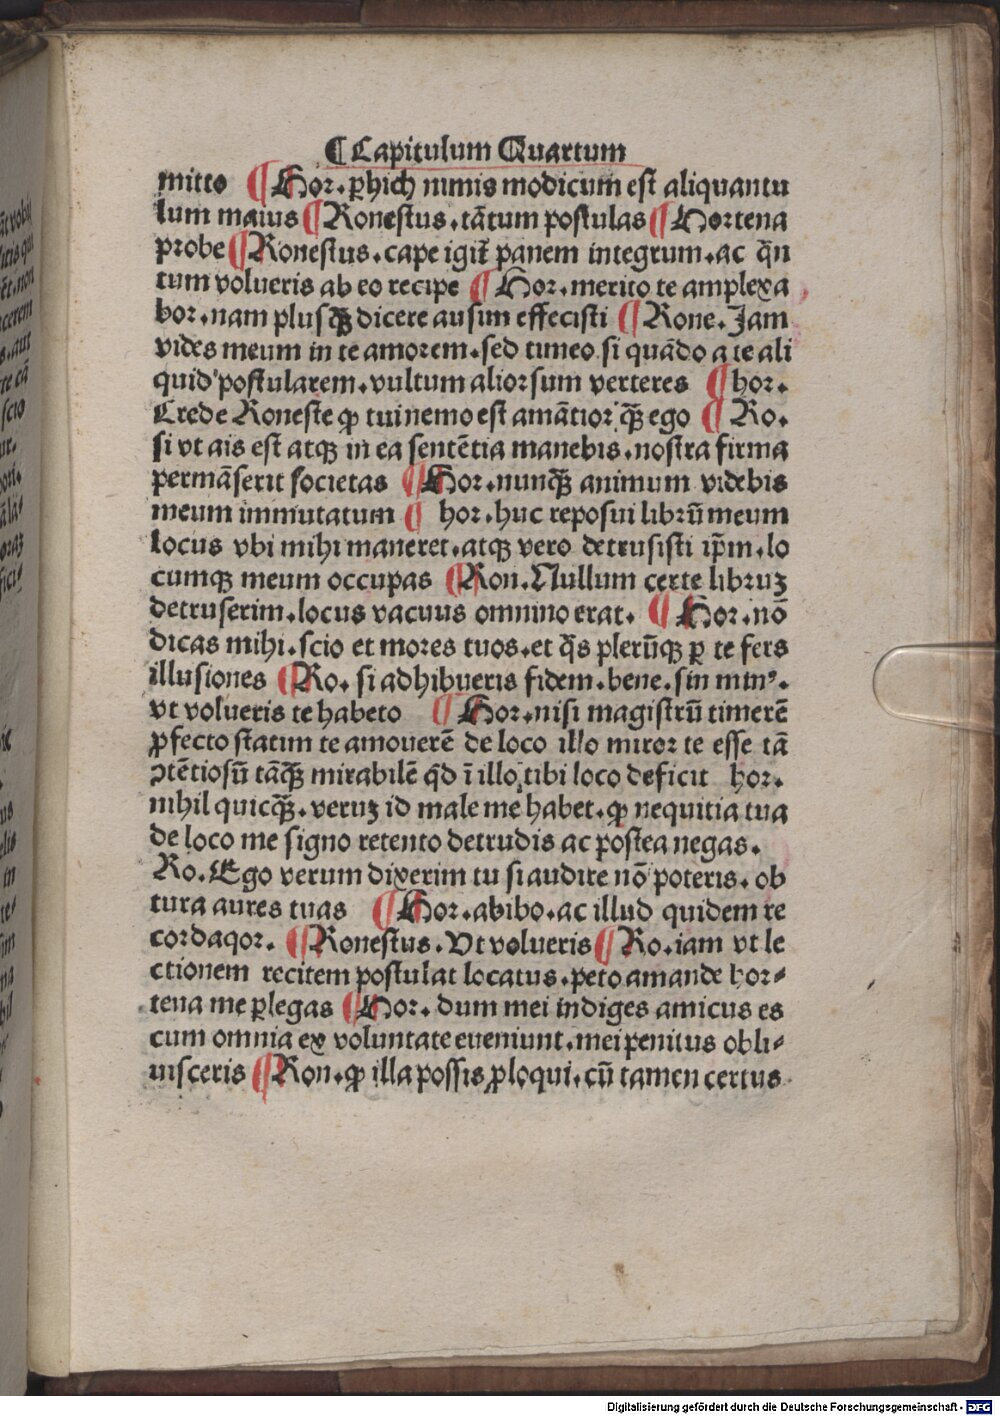 ¶ Capitulum Quartum
mitto ¶ Hor. ꝑhich nimis modicum est aliquantu
lum maius ¶ Ronestus. tãtum postulas ¶ Hortena
probe ¶ Ronestus. cape igit̃ panem integrum. ac q̃n
tum volueris ab eo recipe ¶ Hor. merito te amplexa
bor. nam plusq̃ꝫ dicere ausim effecisti ¶ Rone. Jam
vides meum in te amorem. sed timeo si quãdo a te ali
quid postularem. vultum aliorsum verteres ¶ hor.
Crede Roneste ꝙ tui nemo est amãtior q̃ꝫ ego ¶ Ro.
si vt ais est atqꝫ in ea sentẽtia manebis. nostra firma
permãserit societas ¶ Hor. nunq̃ꝫ animum videbis
meum immutatum ¶ hor. huc reposui librũ meum
locus vbi mihi maneret. atqꝫ vero detrusisti ip̃m. lo
cumqꝫ meum occupas ¶ Ron. Nullum certe libruꝫ
detruserim. locus vacuus omnino erat. ¶ Hor. nõ
dicas mihi. scio et mores tuos. et q̃s plerũqꝫ ꝑ te fers
illusiones ¶ Ro. si adhibueris fidem. bene. sin minꝰ.
vt volueris te habeto ¶ Hor. nisi magistrũ timerẽ
ꝓfecto statim te amouerẽ de loco illo miror te esse tã
ↄtẽtiosũ tãq̃ꝫ mirabilẽ q̃d ĩ illo tibi loco deficit hor.
nihil quicq̃ꝫ. veruꝫ id male me habet. ꝙ nequitia tua
de loco me signo retento detrudis ac postea negas.
Ro. Ego verum dixerim tu si audire nõ poteris. ob
tura aures tuas ¶ Hor. abibo. ac illud quidem re
cordaqor. ¶ Ronestus. Vt volueris ¶ Ro. iam vt le
ctionem recitem postulat locatus. peto amande hor⸗
tena me ꝑlegas ¶ Hor. dum mei indiges amicus es
cum omnia ex voluntate eueniunt. mei penitus obli⸗
uisceris ¶ Ron. ꝙ illa possis ꝓloqui. cũ tamen certus
Digitalisierung gefördert durch die Deutsche Forschungsgemeinschaft - DFG